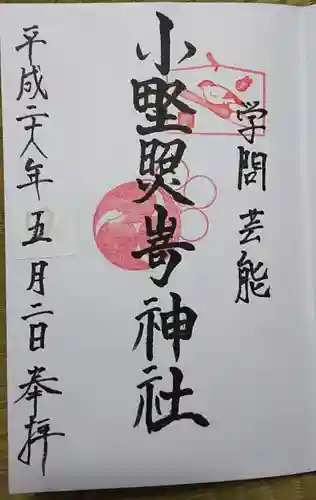 学問 芸能
小野照崎神社
平成二十八年五月二日 奉拝